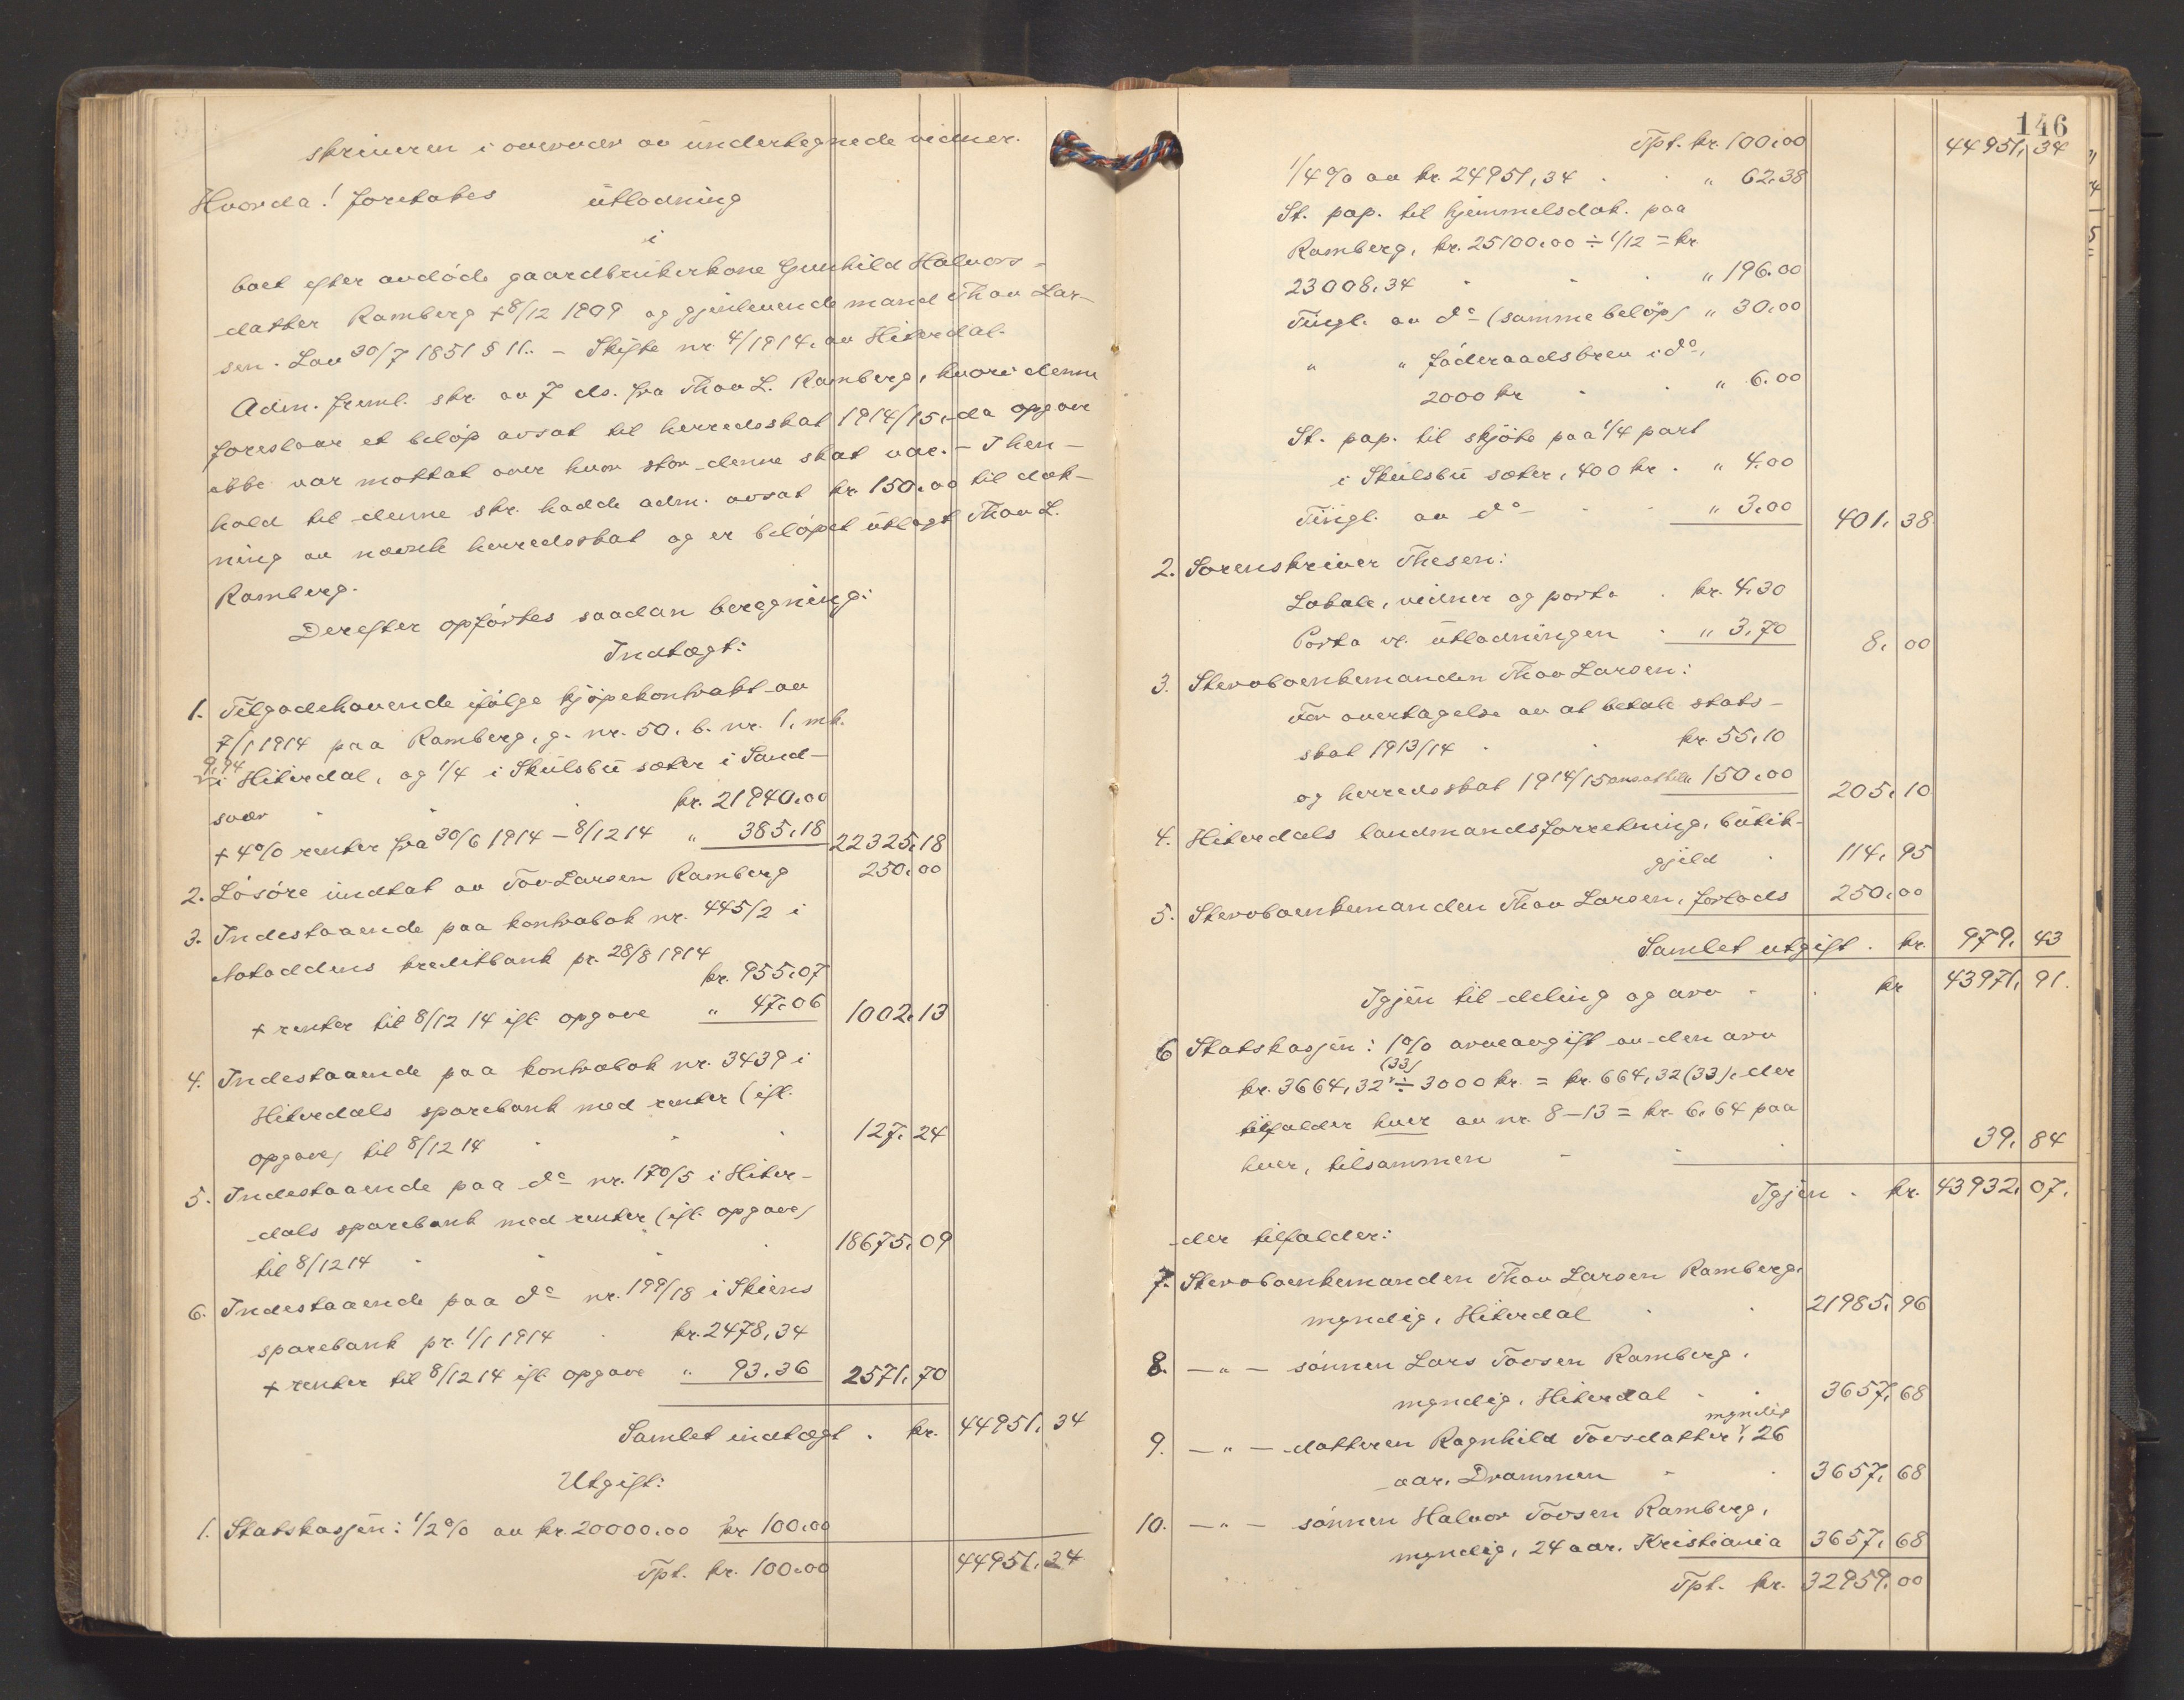 skriveren i overvær av undertegnede vidner.
Hvorda! foretokes utlodning
i
boet efter avdöde gaardbrukerkone Gunhild Halvors-
datter Ramberg + 8/12 1909 og gjenlevende mand Thov Lar-
sen. Lov 30/7 1851 § 11. - Skifte nr. 4/1914. av Hiterdal.
Adm. freml. skr. av 7 ds. fra Thov L. Ramberg, hvori denne
foreslaar et belöp avsat til herredsskat 1914/15, da opgave
ikke var mottat over hvor stor denne skat var. - I hen-
hold til denne skr. hadde adm. avsat kr. 150,00 til dæk-
ning av nævnte herredsskat og er belöpet utlagt Thov L.
Ramberg.
Derefter opförtes saadan beregning:
Indtægt:
1. Tilgodehavende ifölge kjöpekontrakt av
7/1 1914 paa Ramberg, g. nr. 50, b. nr. 1, mk.
9,94
i Hiterdal, og 1/4 i Skulsbu sæter i Saud-
svær kr. 21940,00
+ 4% renter fra 30/6 1914 - 8/12 14 " 385,18 22325,18
2. Lösöre indtat av Tov Larsen Ramberg 250,00
3. Indestaaende paa kontrabok nr. 445/2 i
Notoddens kreditbank pr. 28/8 1914
kr. 955,07
+ renter til 8/12 14 ifl. opgave " 47,06 1002,13
4. Indestaaende paa kontrabok nr. 3439 i
Hiterdals sparebank med renter (ifl.
opgave) til 8/12 14 127,24
5. Indestaaende paa do nr. 170/5 i Hiter-
dals sparebank med renter (ifl. opgave)
til 8/12 14 18675,09
6. Indestaaende paa do nr. 199/18 i Skiens
sparebank pr. 1/1 1914 kr. 2478,34
+ renter til 8/12 14 ifl. opgave " 93,36 2571,70
Samlet indtægt . kr. 44951,34
Utgift:
1. Statskassen: 1/2% av kr. 20000,00 kr. 100,00
Tpt. kr. 100,00 44951,34
146
Tpt. kr. 100,00 44951,34
1/4% av kr. 24951,34 " 62,38
St. pap. til hjemmelsdok. paa
Ramberg, kr. 25100,00 ÷ 1/12 = kr.
23008,34 " 196,00
Tingl. av do (samme belöp) " 30,00
" " föderaadsbrev i do,
2000 kr " 6,00
St. pap. til skjöte paa 1/4 part
i Skulsbu sæter, 400 kr. " 4,00
Tingl. av do " 3,00 401,38
2. Sorenskriver Thesen:
Lokale, vidner og porto . kr. 4,30
Porto v. utlodningen . " 3,70 8,00
3. Stervboenkemanden Thov Larsen:
For overtagelse av at betale stats-
skat 1913/14 kr. 55,10
og herredsskat 1914/15 ansat til " 150,00 205,10
4. Hiterdals landmandsforretning, butik-
gjeld 114,95
5. Stervboenkemanden Thov Larsen, forlods 250,00
Samlet utgift . kr. 979,43
Igjen til deling og arv . . kr 43971,91.
6 Statskassen: 1% arveavgift av den arv
(33)
kr. 3664,32 ÷ 3000 kr. = kr. 664,32 (33), der
tilfalder hver av nr. 8-13 = kr. 6,64 paa
hver, tilsammen 39,84
Igjen . kr. 43932,07.
der tilfalder:
7. Stervboenkemanden Thov Larsen Ramberg,
myndig, Hiterdal 21985,96
8. — " — sönnen Lars Tovsen Ramberg,
myndig, Hiterdal 3657,68
myndig
9. — " — datteren Ragnhild Tovsdatter, 26
aar, Drammen 3657,68
10. — " — sönnen Halvor Tovsen Ramberg,
myndig, 24 aar, Kristiania 3657,68
Tpt. kr. 32959,00